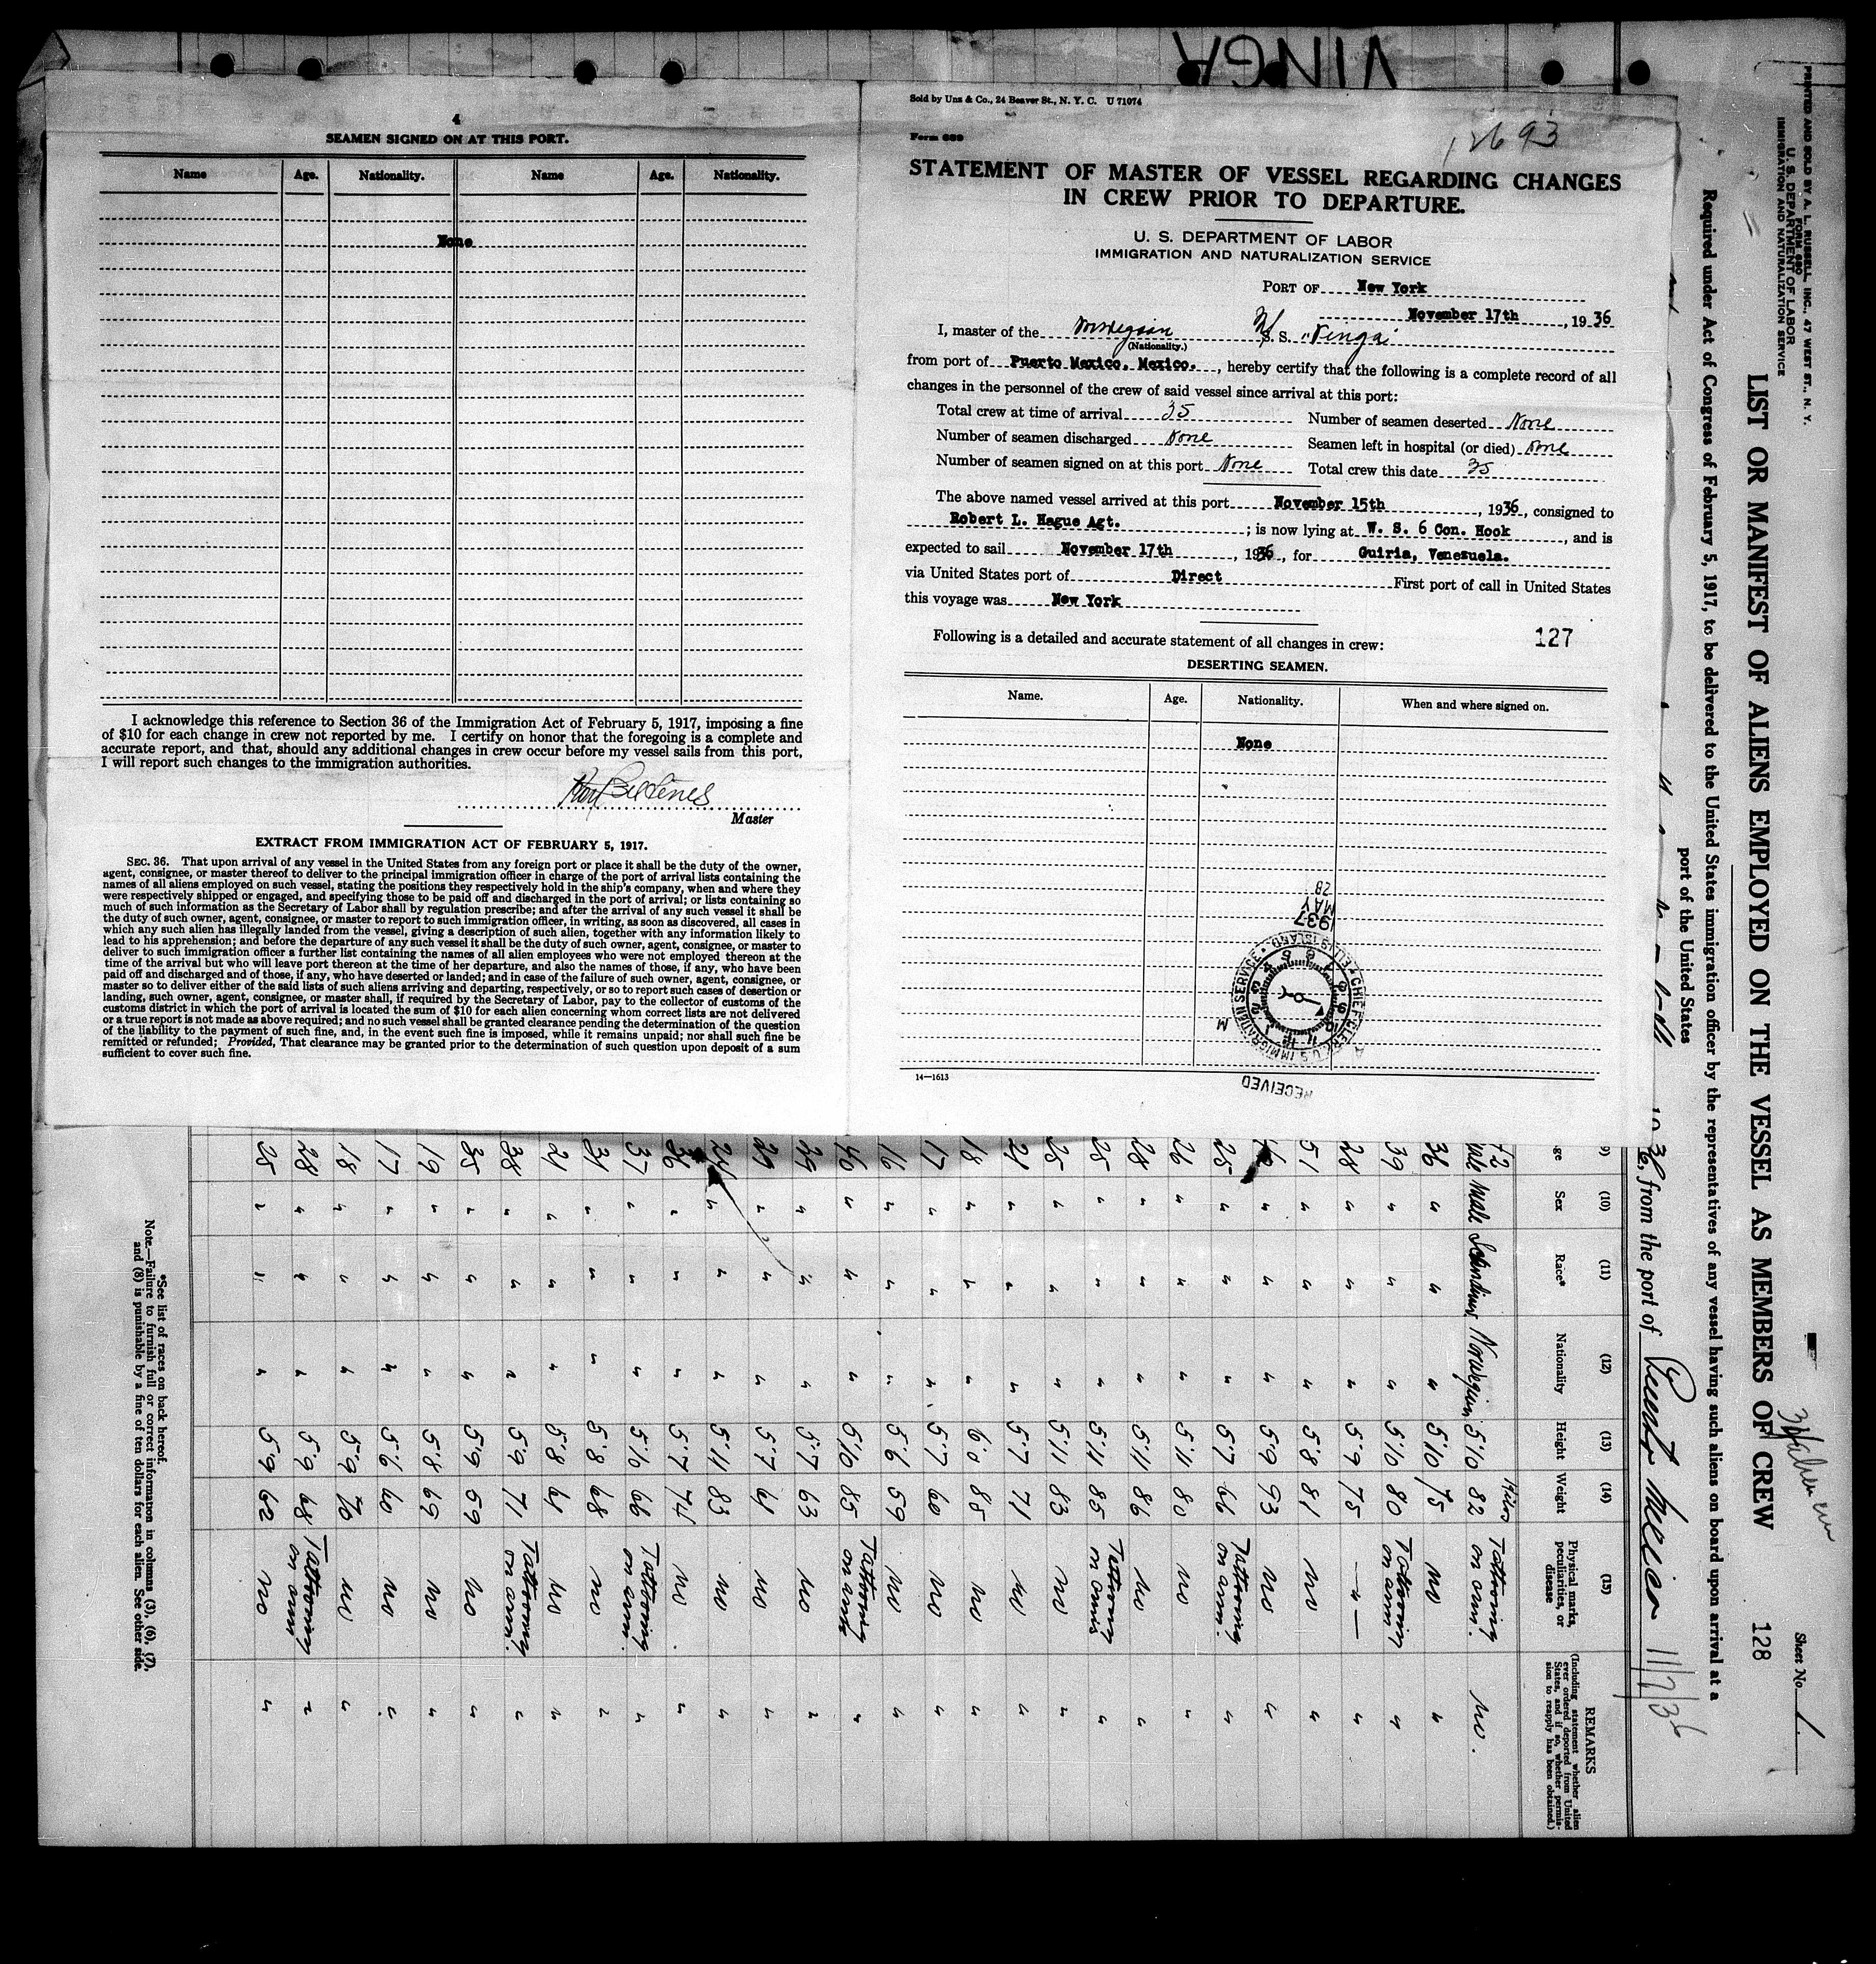 VINGA
4
SEAMEN SIGNED ON AT THIS PORT.
Name Age. Nationality. Name Age. Nationality.
None
I acknowledge this reference to Section 36 of the Immigration Act of February 5, 1917, imposing a fine
of $10 for each change in crew not reported by me. I certify on honor that the foregoing is a complete and
accurate report, and that, should any additional changes in crew occur before my vessel sails from this port,
I will report such changes to the immigration authorities.
Master
EXTRACT FROM IMMIGRATION ACT OF FEBRUARY 5, 1917.
SEC. 36. That upon arrival of any vessel in the United States from any foreign port or place it shall be the duty of the owner,
agent, consignee, or master thereof to deliver to the principal immigration officer in charge of the port of arrival lists containing the
names of all aliens employed on such vessel, stating the positions they respectively hold in the ship's company, when and where they
were respectively shipped or engaged, and specifying those to be paid off and discharged in the port of arrival; or lists containing so
much of such information as the Secretary of Labor shall by regulation prescribe; and after the arrival of any such vessel it shall be
the duty of such owner, agent, consignee, or master to report to such immigration officer, in writing, as soon as discovered, all cases in
which any such alien has illegally landed from the vessel, giving a description of such alien, together with any information likely to
lead to his apprehension; and before the departure of any such vessel it shall be the duty of such owner, agent, consignee, or master to
deliver to such immigration officer a further list containing the names of all alien employees who were not employed thereon at the
time of the arrival but who will leave port thereon at the time of her departure, and also the names of those, if any, who have been
paid off and discharged and of those, if any, who have deserted or landed; and in case of the failure of such owner, agent, consignee, or
master so to deliver either of the said lists of such aliens arriving and departing, respectively, or so to report such cases of desertion or
landing, such owner, agent, consignee, or master shall, if required by the Secretary of Labor, pay to the collector of customs of the
customs district in which the port of arrival is located the sum of $10 for each alien concerning whom correct lists are not delivered
or a true report is not made as above required; and no such vessel shall be granted clearance pending the determination of the question
of the liability to the payment of such fine, and, in the event such fine is imposed, while it remains unpaid; nor shall such fine be
remitted or refunded; Provided, That clearance may be granted prior to the determination of such question upon deposit of a sum
sufficient to cover such fine.
Sold by Unz & Co., 24 Beaver St., N. Y. C. U 71074
Form 689
12693
STATEMENT OF MASTER OF VESSEL REGARDING CHANGES
IN CREW PRIOR TO DEPARTURE.
U. S. DEPARTMENT OF LABOR
IMMIGRATION AND NATURALIZATION SERVICE
PORT OF New York
November 17th, 1936
I, master of the Norwegian M/S. S. "Vinga"
(Nationality.)
from port of Puerto Mexico. Mexico., hereby certify that the following is a complete record of all
changes in the personnel of the crew of said vessel since arrival at this port:
Total crew at time of arrival 35 Number of seamen deserted None
Number of seamen discharged None Seamen left in hospital (or died) None
Number of seamen signed on at this port None Total crew this date 35
The above named vessel arrived at this port November 15th, 1936, consigned to
Robert L. Hague Agt.; is now lying at W. S. 6 Con. Hook, and is
expected to sail November 17th, 1936, for Guiria, Venezuela.
via United States port of Direct First port of call in United States
this voyage was New York
Following is a detailed and accurate statement of all changes in crew: 127
DESERTING SEAMEN.
Name. Age. Nationality. When and where signed on.
None
1937 MAY 28
RECEIVED
14—1613
PRINTED AND SOLD BY A. L. RUSSELL, INC., 47 WEST ST., N. Y.
FORM 680
U. S. DEPARTMENT OF LABOR
IMMIGRATION AND NATURALIZATION SERVICE
Sheet No. 1
LIST OR MANIFEST OF ALIENS EMPLOYED ON THE VESSEL AS MEMBERS OF CREW 128
Required under Act of Congress of February 5, 1917, to be delivered to the United States immigration officer by the representatives of any vessel having such aliens on board upon arrival at a
port of the United States
1936, from the port of Puerto Mexico 11/7/36
(10) (11) (12) (13) (14) (15)
Sex Race* Nationality Height Weight Physical marks, peculiarities, or disease REMARKS
(Including statement whether alien ever ordered deported from United States, and if so, whether permission to reapply has been obtained.)
Kilos
42 Male Scandinav. Norwegian 5'10 82 Tattooing on arm. No.
36 " " " 5'10 75 No "
39 " " " 5'10 80 Tattooing on arm "
28 " " " 5'9 75 — " — "
51 " " " 5'8 81 No "
" " " 5'9 93 No "
25 " " " 5'7 66 Tattooing on arm. "
26 " " " 5'11 80 No "
28 " " " 5'11 86 No "
25 " " " 5'11 85 Tattooing on arms "
25 " " " 5'11 83 No "
21 " " " 5'7 71 No "
18 " " " 6'0 85 No "
17 " " " 5'7 60 No "
16 " " " 5'6 59 No "
40 " " " 5'10 85 Tattooing on arms "
39 " " " 5'7 63 No "
" " " 5'7 61 No "
24 " " " 5'11 83 No "
36 " " " 5'7 74 No "
37 " " " 5'10 66 Tattooing on arm. "
31 " " " 5'8 68 No "
21 " " " 5'8 61 No "
38 " " " 5'9 71 Tattooing on arm. "
35 " " " 5'9 59 No "
19 " " " 5'8 69 No "
17 " " " 5'6 60 No "
18 " " " 5'9 70 No "
28 " " " 5'9 68 Tattooing on arm "
25 " " " 5'9 62 No "
*See list of races on back hereof.
Note.—Failure to furnish full or correct information in columns (3), (6), (7),
and (8) is punishable by a fine of ten dollars for each alien. See other side.